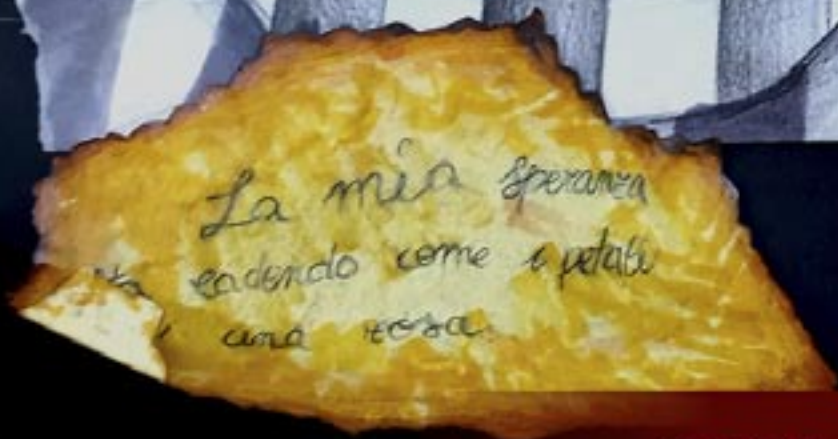 La mia speranza
sta cadendo come i petali
una rosa.